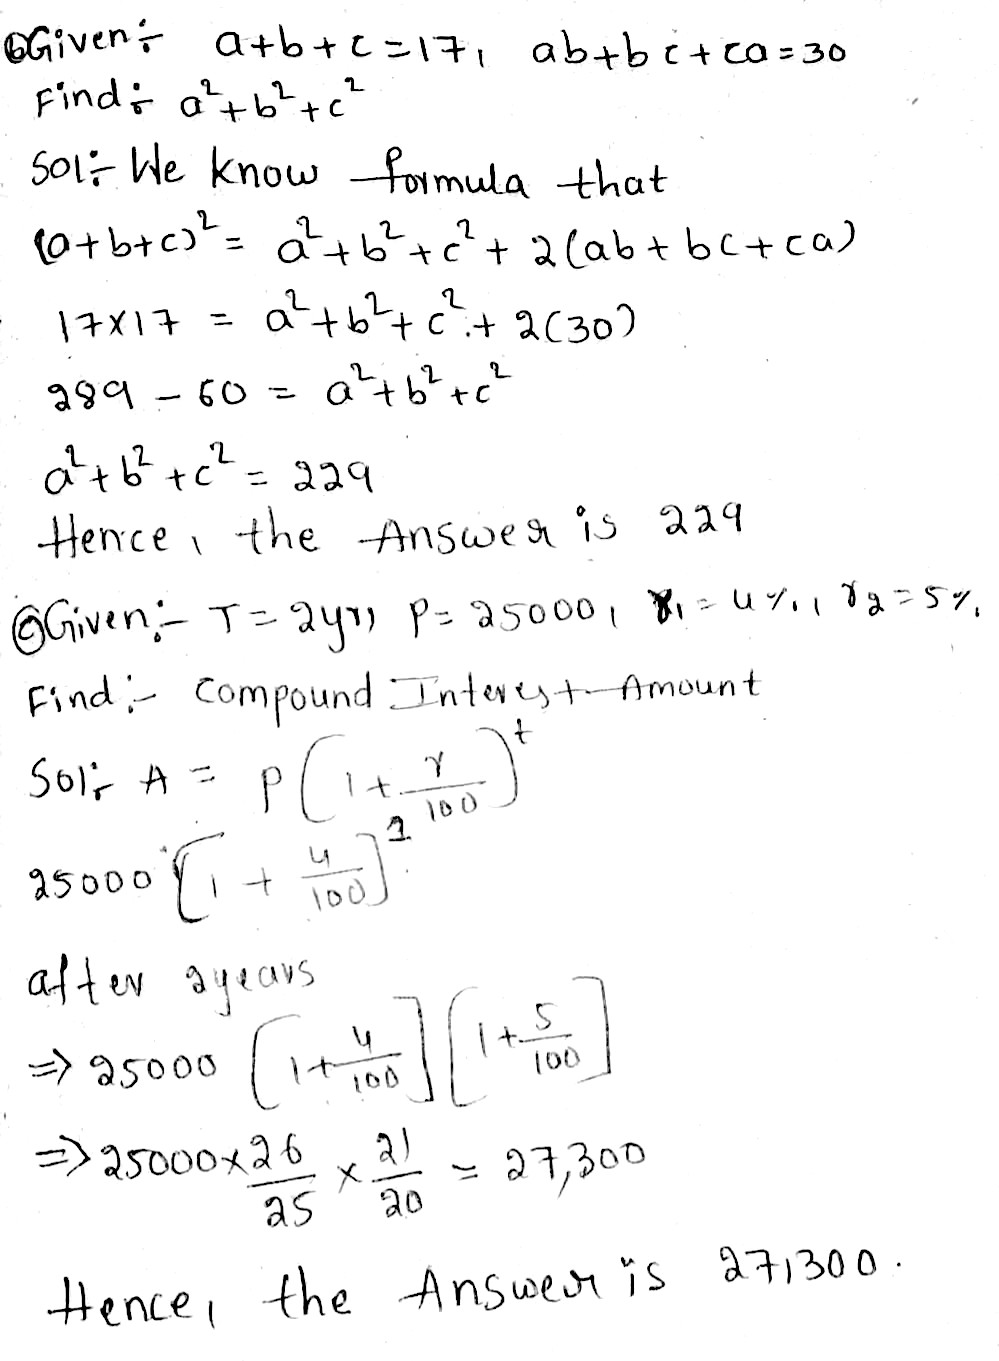 ⑥Given:- a+b+c=17, ab+bc+ca=30
Find:- a²+b²+c²
Sol:- We know formula that
(a+b+c)² = a²+b²+c²+2(ab+bc+ca)
17×17 = a²+b²+c²+2(30)
289-60 = a²+b²+c²
a²+b²+c² = 229
Hence, the Answer is 229
⑥Given:- T=2yrs, P=25000, r₁=4%, r₂=5%.
Find:- Compound Interest Amount
Sol:- A = P(1+r/100)^t
25000[1+4/100]¹
after 2years
⇒25000[1+4/100][1+5/100]
⇒25000×26/25×21/20 = 27,300
Hence, the Answer is 27,300.